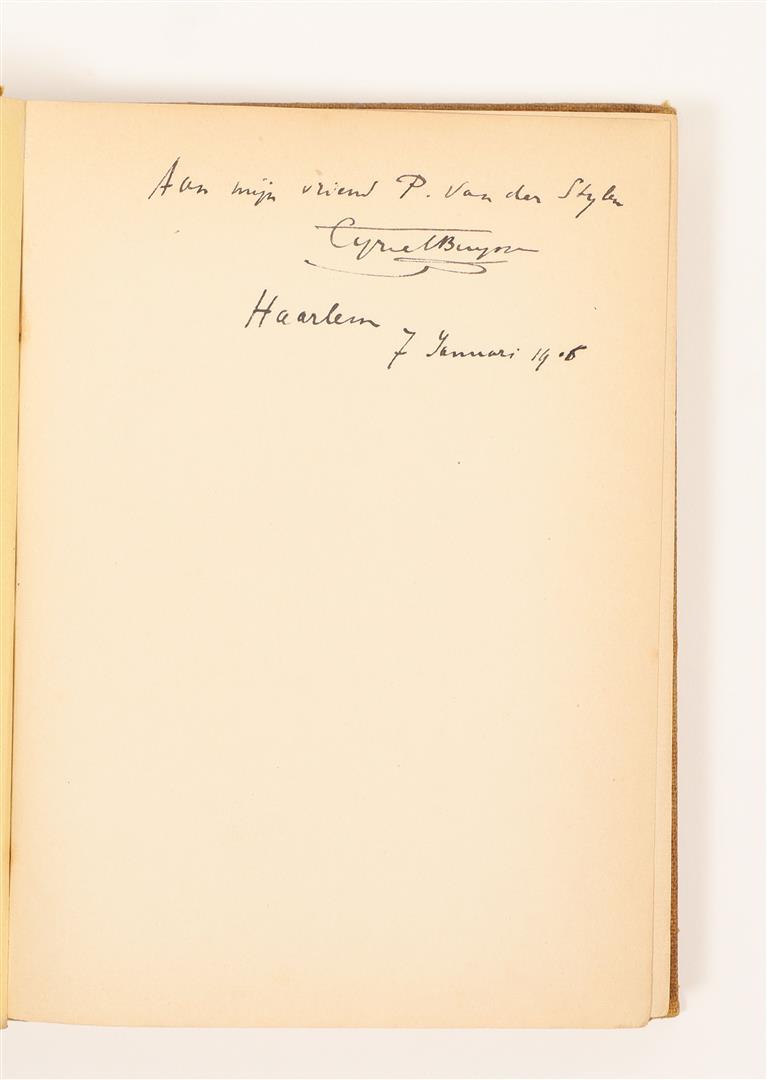 Aan mijn vriend P. Van der Stylen
Cyriel Buysse
Haarlem
7 Januari